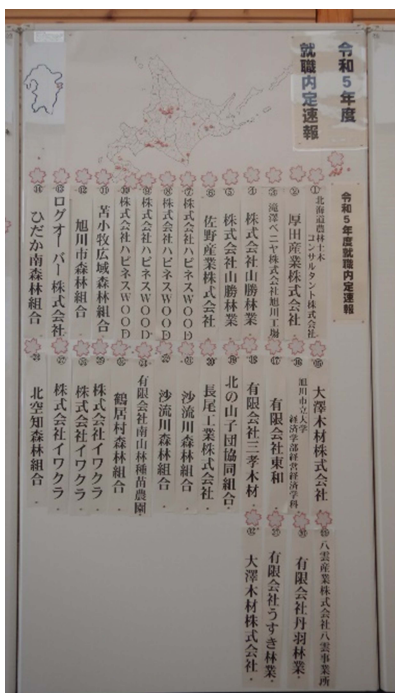 令和5年度
就職内定速報
令和5年度就職内定速報
① 北海道農林土木コンサルタント株式会社
② 厚田産業株式会社
③ 滝澤ベニヤ株式会社旭川工場
④ 株式会社山勝林業
⑤ 株式会社山勝林業
⑥ 佐野産業株式会社
⑦ 株式会社ハピネスWOOD
⑧ 株式会社ハピネスWOOD
⑨ 株式会社ハピネスWOOD
⑩ 株式会社ハピネスWOOD
⑪ 苫小牧広域森林組合
⑫ 旭川市森林組合
⑬ ログオーバー株式会社
⑭ ひだか南森林組合
大澤木材株式会社
旭川市立大学
経済学部経営経済学科
有限会社東和
有限会社三孝木材
北の山子団協同組合
長尾工業株式会社
沙流川森林組合
沙流川森林組合
有限会社南山林種苗農園
鶴居村森林組合
株式会社イワクラ
株式会社イワクラ
株式会社イワクラ
北空知森林組合
八雲産業株式会社八雲事業所
有限会社丹羽林業
有限会社うすき林業
大澤木材株式会社